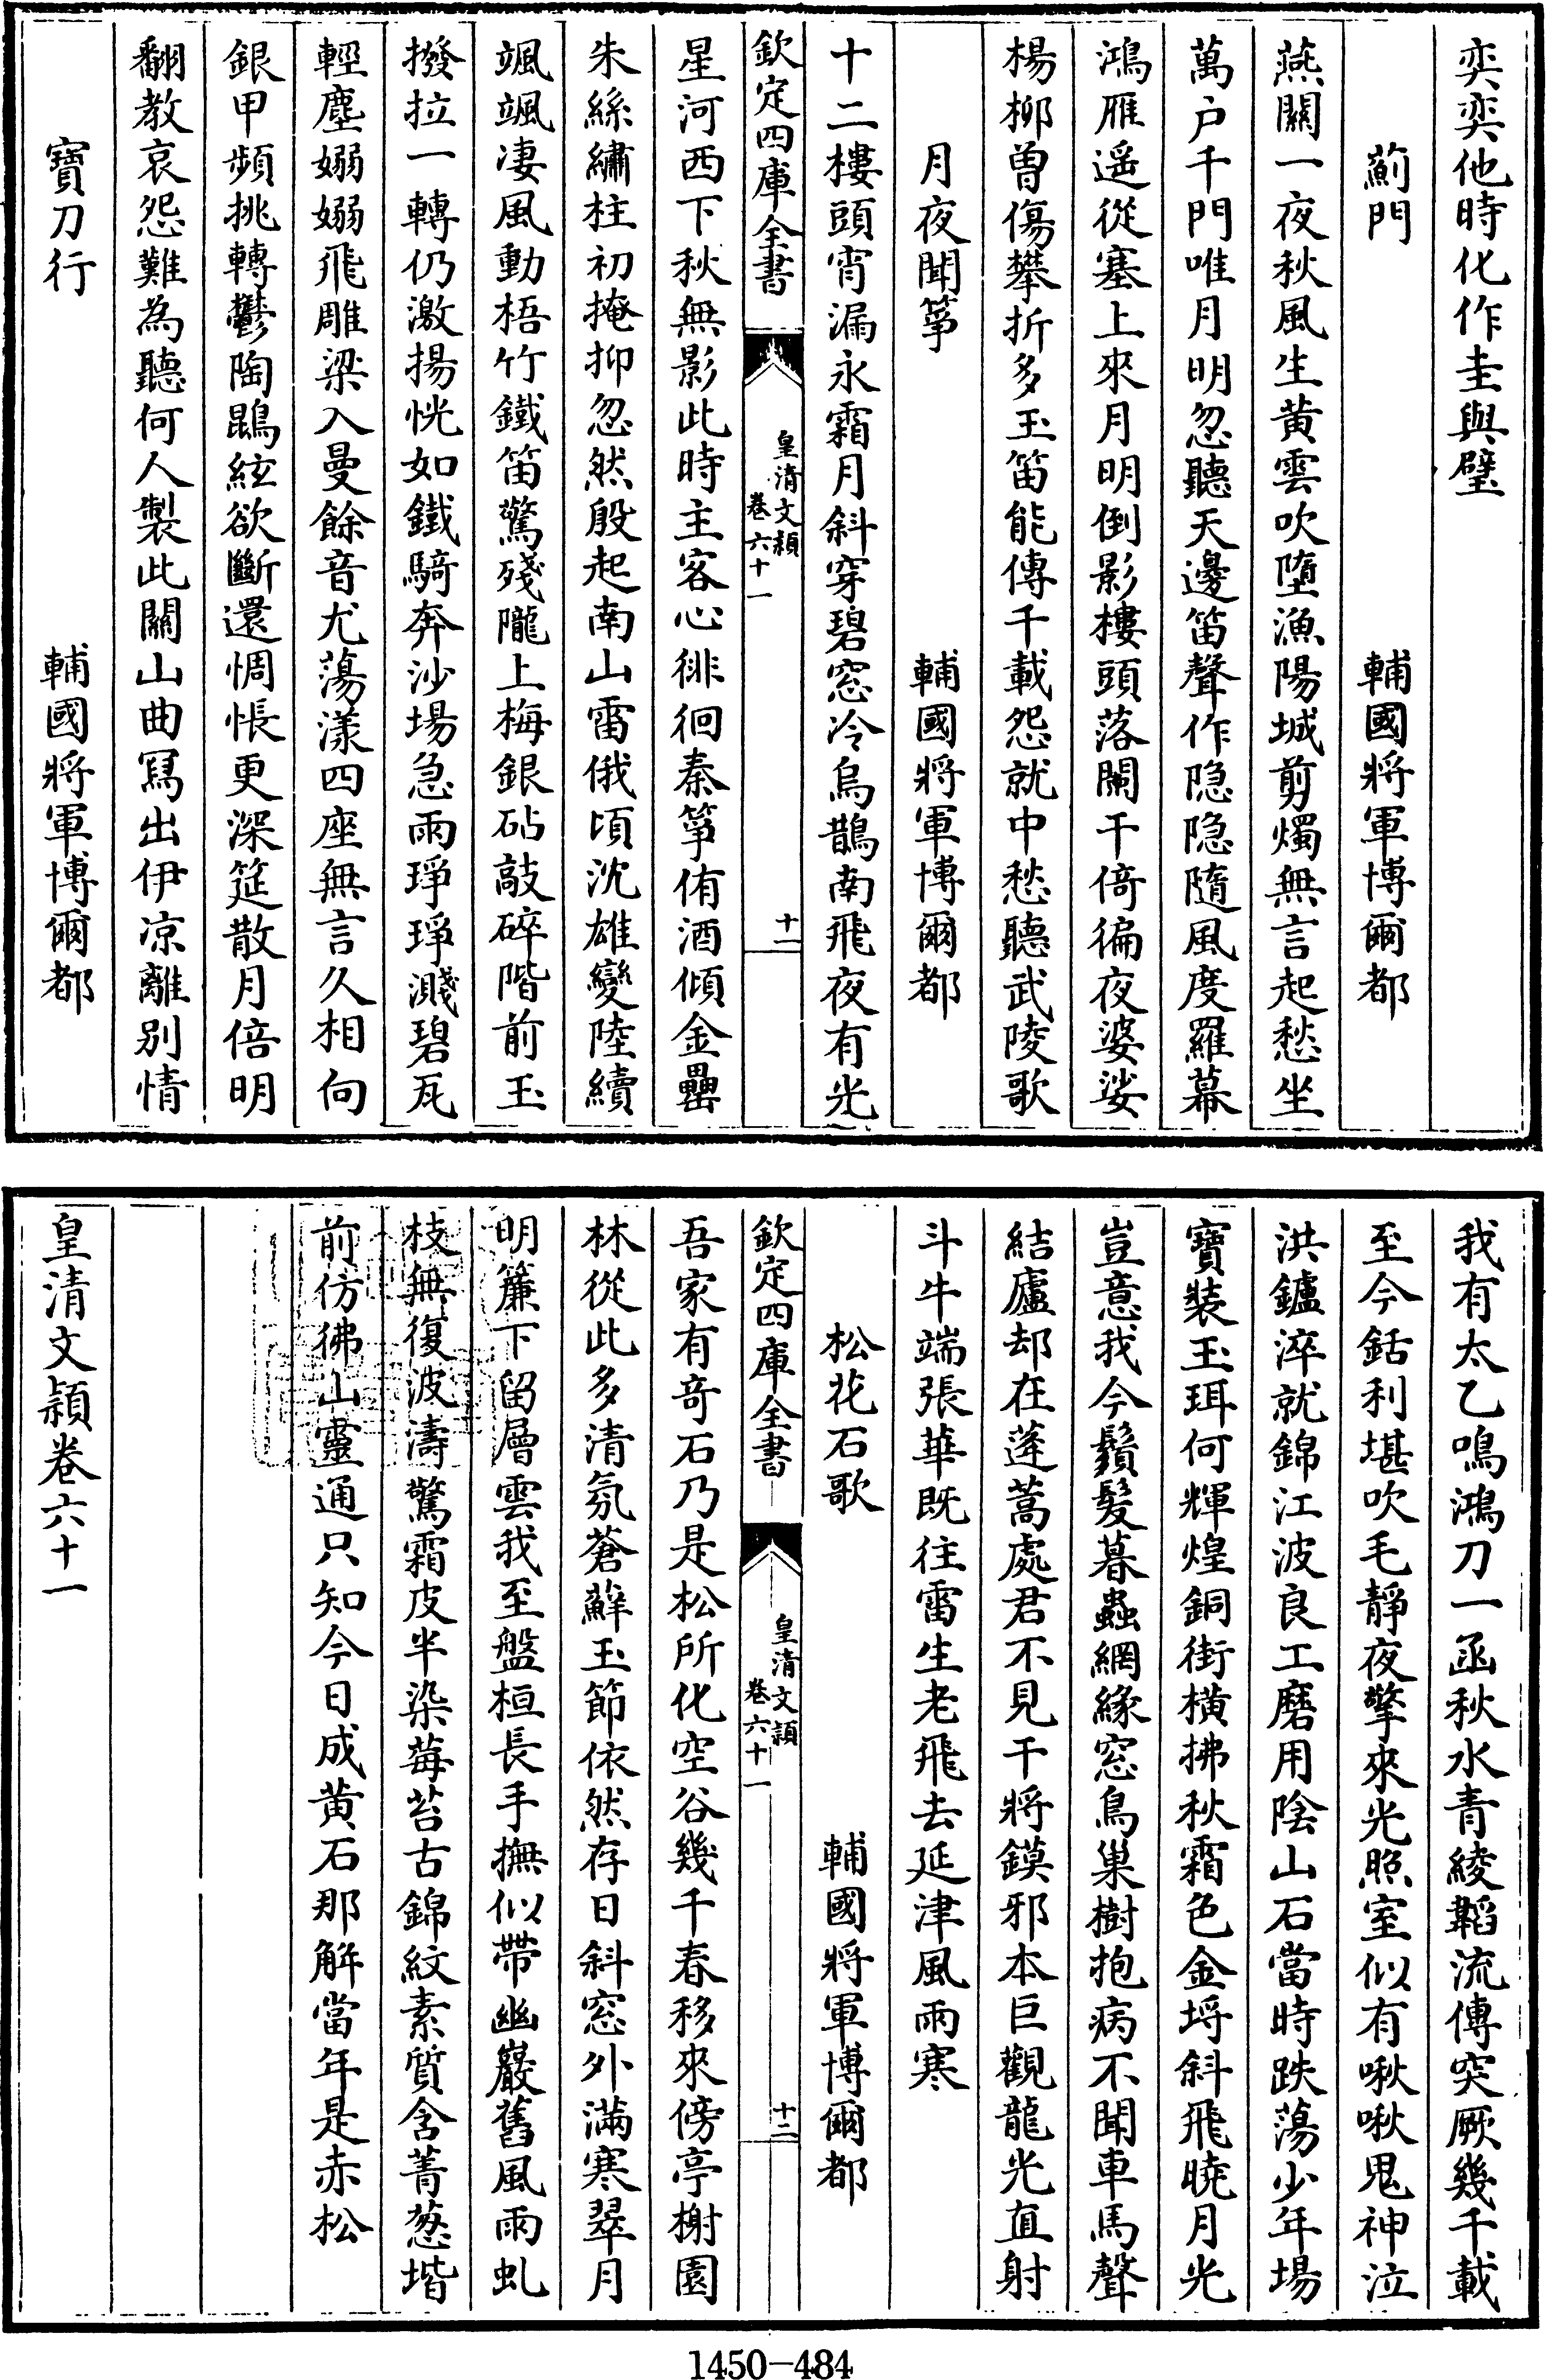 奕奕他時化作圭與璧
薊門　輔國將軍博爾都
燕關一夜秋風生黄雲吹墮漁陽城剪燭無言起愁坐
萬户千門唯月明忽聽天邊笛聲作隐隐隨風度羅幕
鴻雁遥從塞上來月明倒影樓頭落闌干倚徧夜婆娑
楊柳曾傷攀折多玉笛能傳千載怨就中愁聽武陵歌
月夜聞箏　輔國將軍博爾都
十二樓頭宵漏永霜月斜穿碧窓冷烏鵲南飛夜有光
欽定四庫全書　皇清文穎　卷六十一　十一
星河西下秋無影此時主客心徘徊秦箏侑酒傾金罍
朱絲繡柱初掩抑忽然殷起南山雷俄頃沈雄變陸續
颯颯凄風動梧竹鐵笛驚殘隴上梅銀砧敲碎階前玉
撥拉一轉仍激揚恍如鐵騎奔沙場急雨琤琤濺碧瓦
輕塵嫋嫋飛雕梁入曼餘音尤蕩漾四座無言久相向
銀甲頻挑轉鬱陶鵾絃欲斷還惆悵更深筵散月倍明
翻教哀怨難為聽何人製此關山曲冩出伊凉離别情
寶刀行　輔國將軍博爾都
我有太乙鳴鴻刀一函秋水青綾韜流傳突厥幾千載
至今銛利堪吹毛靜夜擎來光照室似有啾啾鬼神泣
洪鑪淬就錦江波良工磨用陰山石當時跌蕩少年場
寶裝玉珥何輝煌銅街横拂秋霜色金埒斜飛曉月光
豈意我今鬚髮暮蟲網緣窓鳥巢樹抱病不聞車馬聲
結廬却在蓬蒿處君不見干將鏌邪本巨觀龍光直射
斗牛端張華既往雷生老飛去延津風雨寒
松花石歌　輔國將軍博爾都
欽定四庫全書　皇清文穎　卷六十一　十二
吾家有奇石乃是松所化空谷幾千春移來傍亭榭園
林從此多清氛蒼蘚玉節依然存日斜窓外滿寒翠月
明簾下留層雲我至盤桓長手撫似帶幽巖舊風雨虬
枝無復波濤驚霜皮半染莓苔古錦紋素質含菁葱堦
前仿彿山靈通只知今日成黄石那解當年是赤松
皇清文穎卷六十一
1450-484